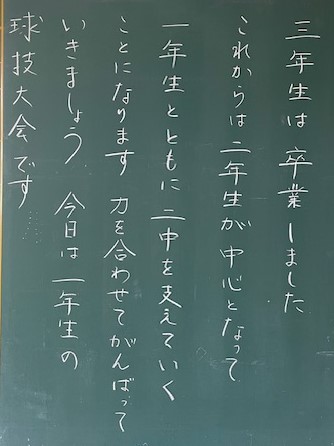 三年生は卒業しました
これからは二年生が中心となって
一年生とともに二中を支えていく
ことになります 力を合わせてがんばって
いきましょう 今日は一年生の
球技大会です